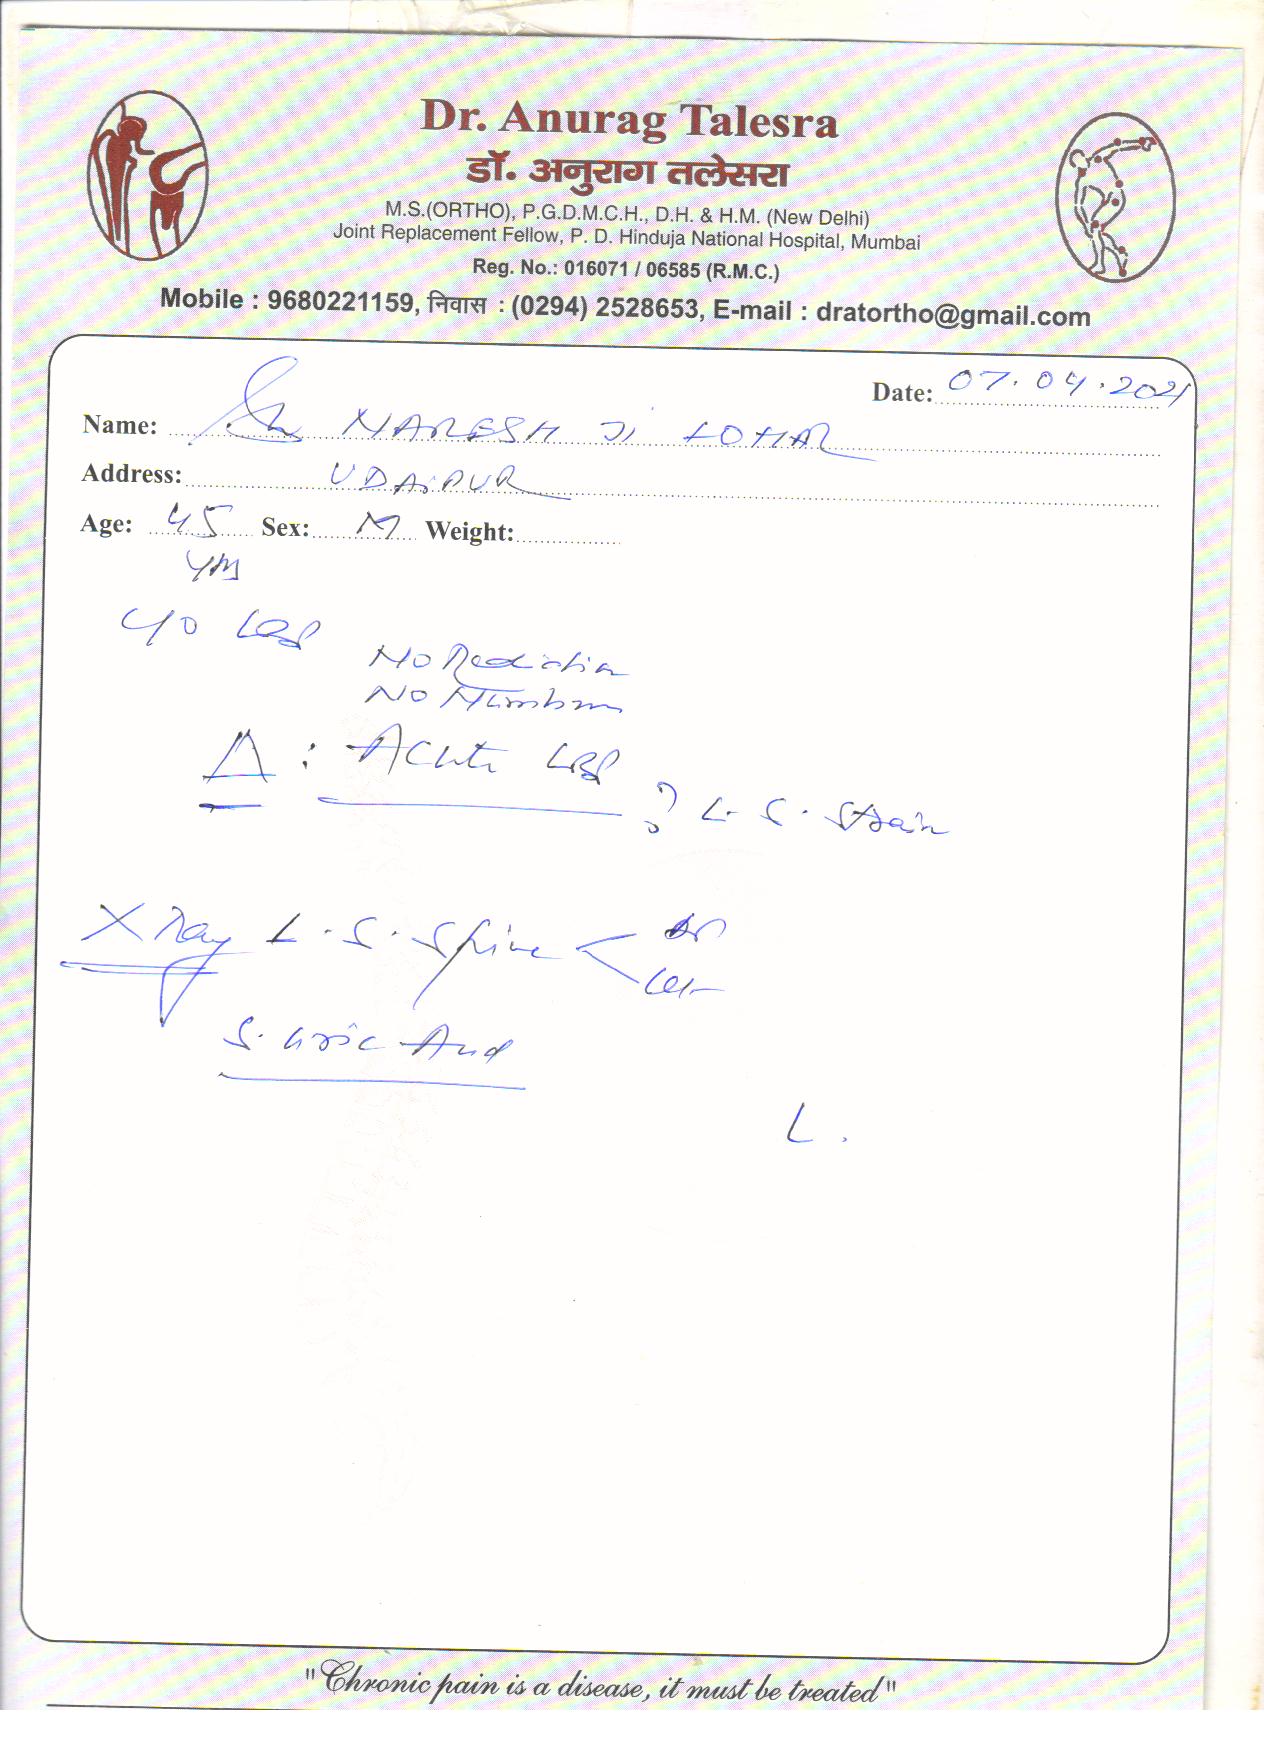 Dr. Anurag Talesra
डॉ. अनुराग तलेसरा
M.S.(ORTHO), P.G.D.M.C.H., D.H. & H.M. (New Delhi)
Joint Replacement Fellow, P. D. Hinduja National Hospital, Mumbai
Reg. No.: 016071 / 06585 (R.M.C.)
Mobile : 9680221159, निवास : (0294) 2528653, E-mail : dratortho@gmail.com
Date: 07.04.2021
Name: NARESH JI LOHAR
Address: UDAiPUR
Age: 45 Sex: M Weight:
yrs
C/O LBP
No Radiation
No Numbness
Δ : Acute LBP
? L.S. Strain
X Ray L.S. Spine < AP
Lat
S. Uric Acid
L.
"Chronic pain is a disease, it must be treated"